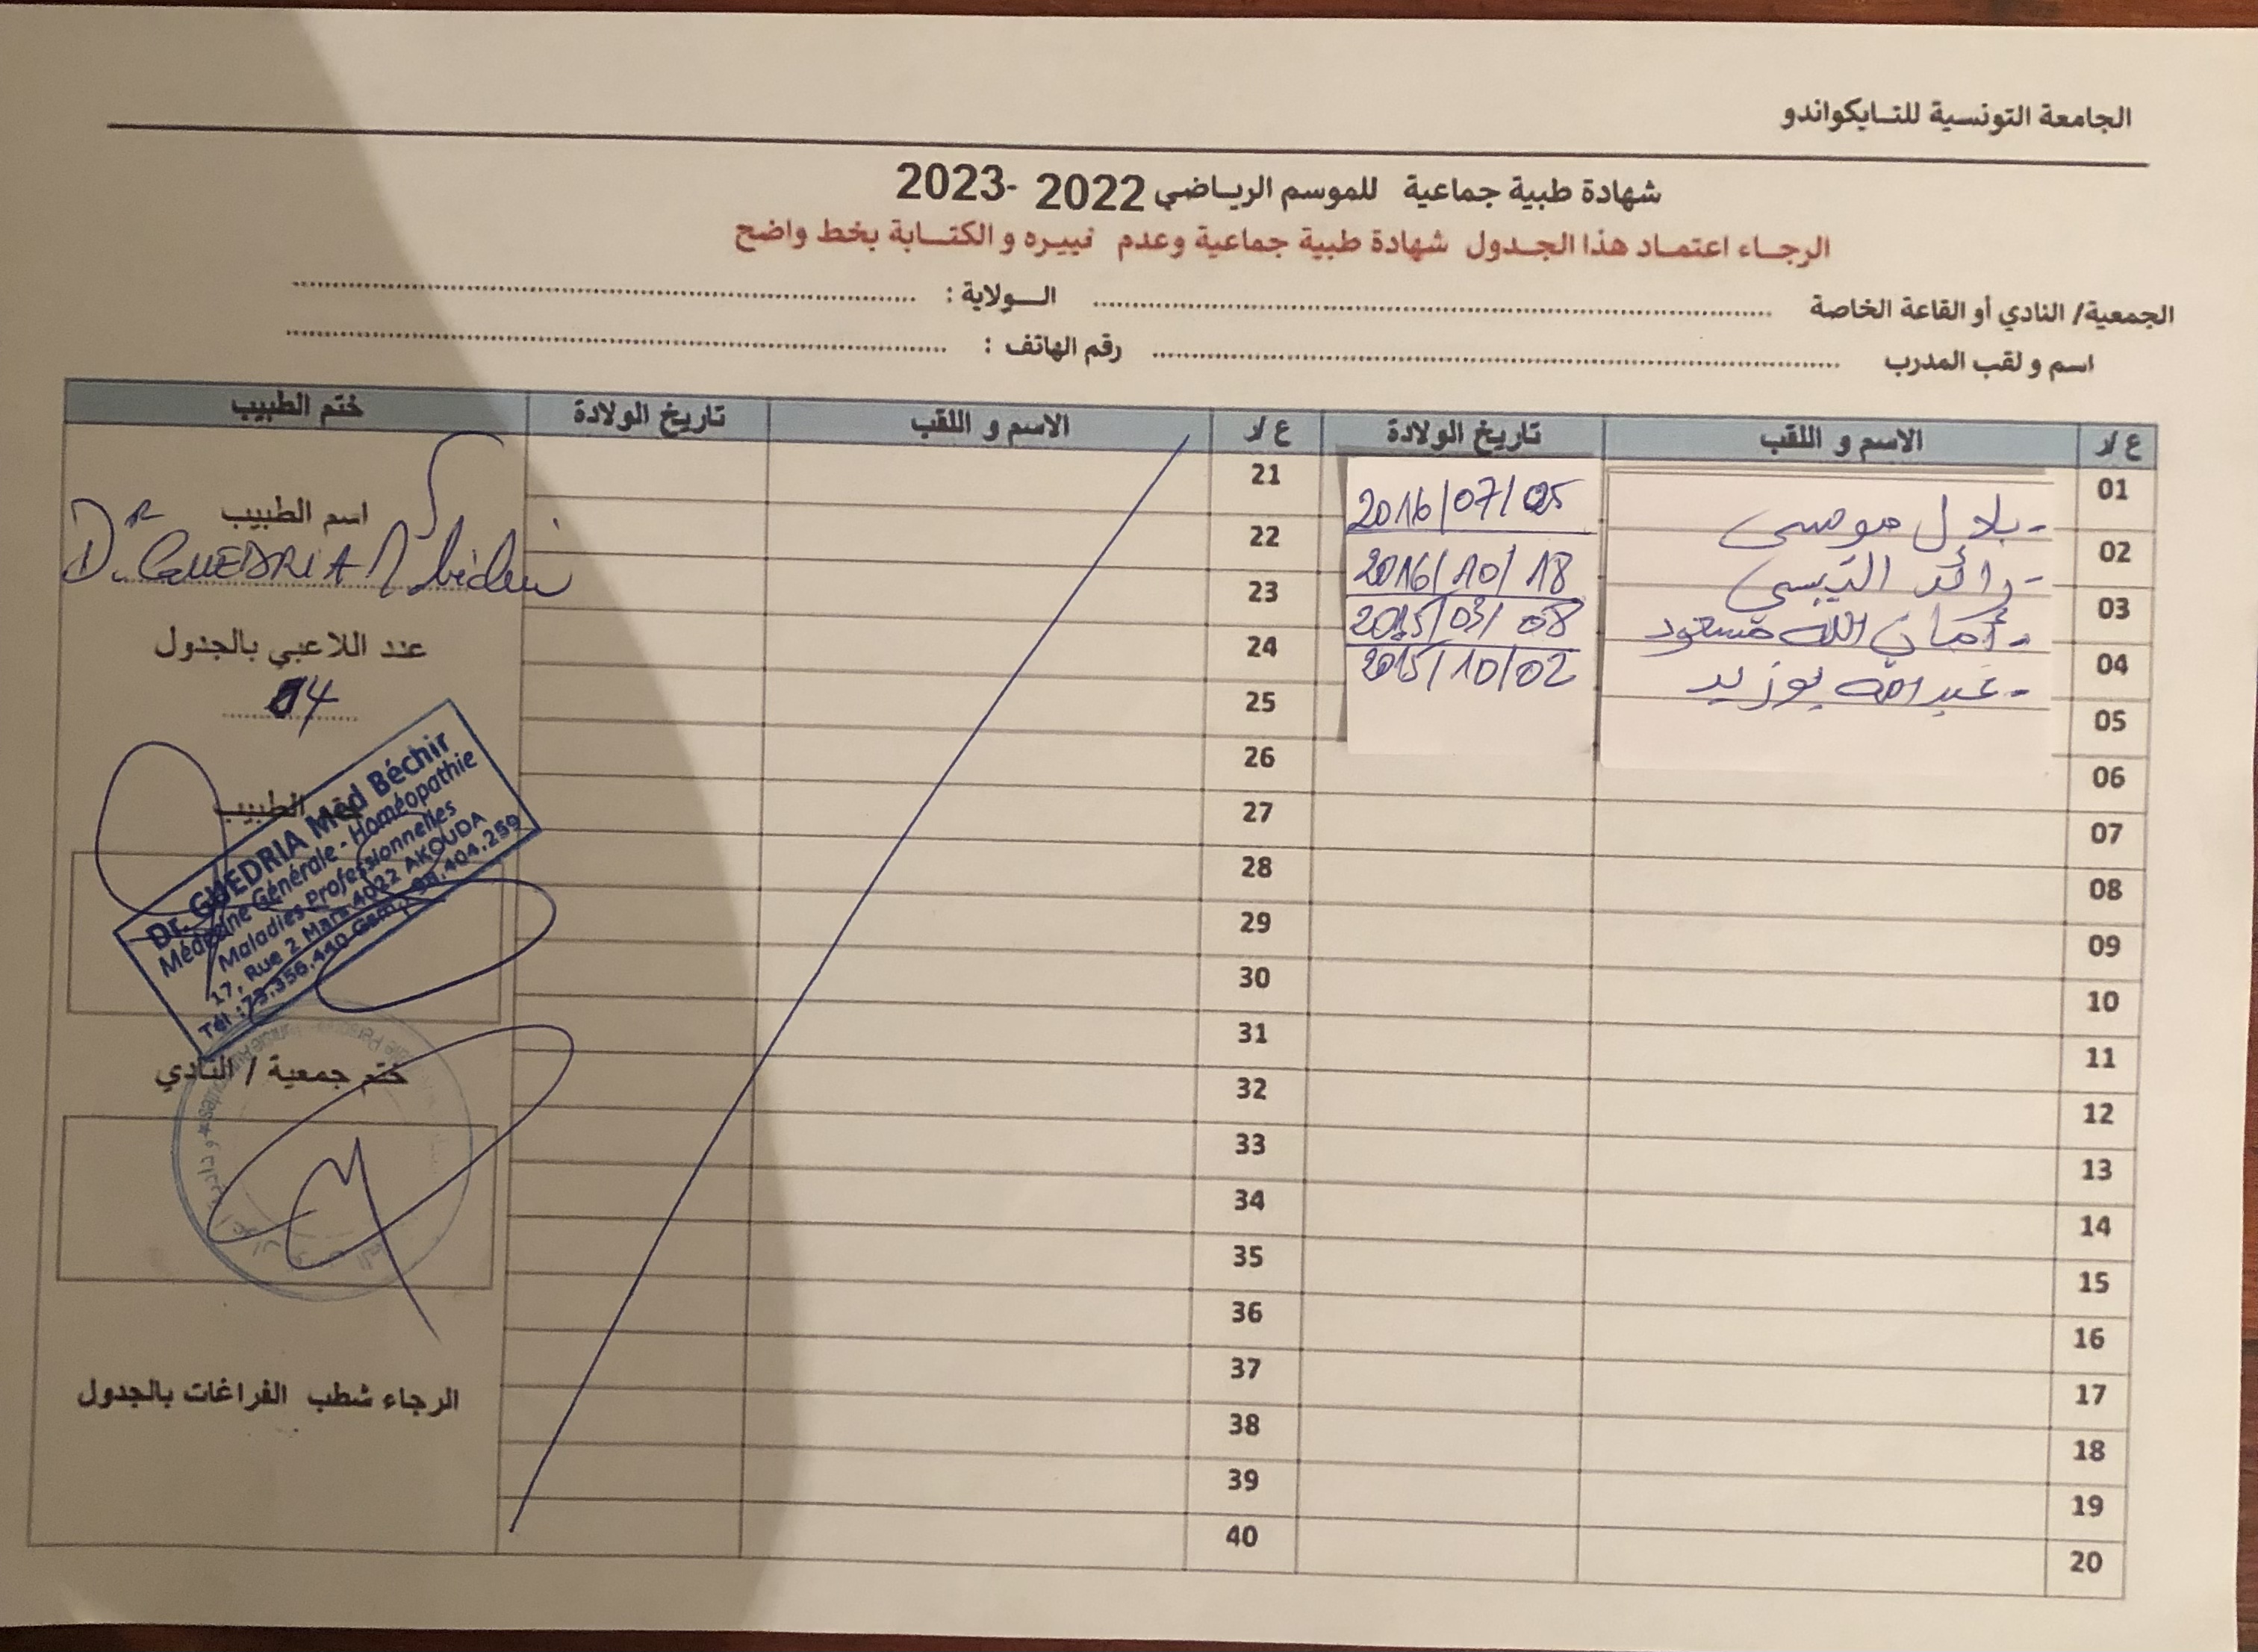 الجامعة التونسية للتايكواندو
شهادة طبية جماعية للموسم الرياضي 2022 -2023
الرجاء اعتماد هذا الجدول شهادة طبية جماعية وعدم تغييره و الكتابة بخط واضح
الجمعية/ النادي أو القاعة الخاصة ........ الولاية : ........
اسم و لقب المدرب ........ رقم الهاتف : ........
ع/ر الاسم و اللقب تاريخ الولادة ع/ر الاسم و اللقب تاريخ الولادة ختم الطبيب
01 - بلال موسى 2016/07/05 21
02 - رائد التبسي 2016/10/18 22
03 - أمان الله مسعود 2015/03/08 23
04 - عبد الله بوزيد 2015/10/02 24
05 25
06 26
07 27
08 28
09 29
10 30
11 31
12 32
13 33
14 34
15 35
16 36
17 37
18 38
19 39
20 40
اسم الطبيب
Dr GUEDRIA
عند اللاعبي بالجدول
04
الطبيب
Dr. GUEDRIA Med Béchir
Médecine Générale - Homéopathie
Maladies Professionnelles
17, Rue 2 Mars 4022 AKOUDA
Tél :73.356.440 Gsm : 98.404.259
ختم جمعية / النادي
الرجاء شطب الفراغات بالجدول